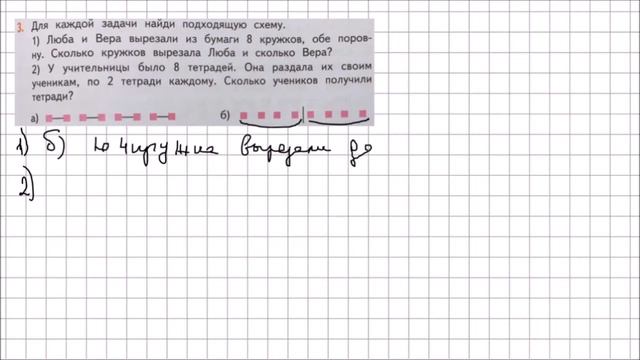 3. Для каждой задачи найди подходящую схему.
1) Люба и Вера вырезали из бумаги 8 кружков, обе поров-
ну. Сколько кружков вырезала Люба и сколько Вера?
2) У учительницы было 8 тетрадей. Она раздала их своим
ученикам, по 2 тетради каждому. Сколько учеников получили
тетради?
а) б)
1) б) по 4 вырезали
2)